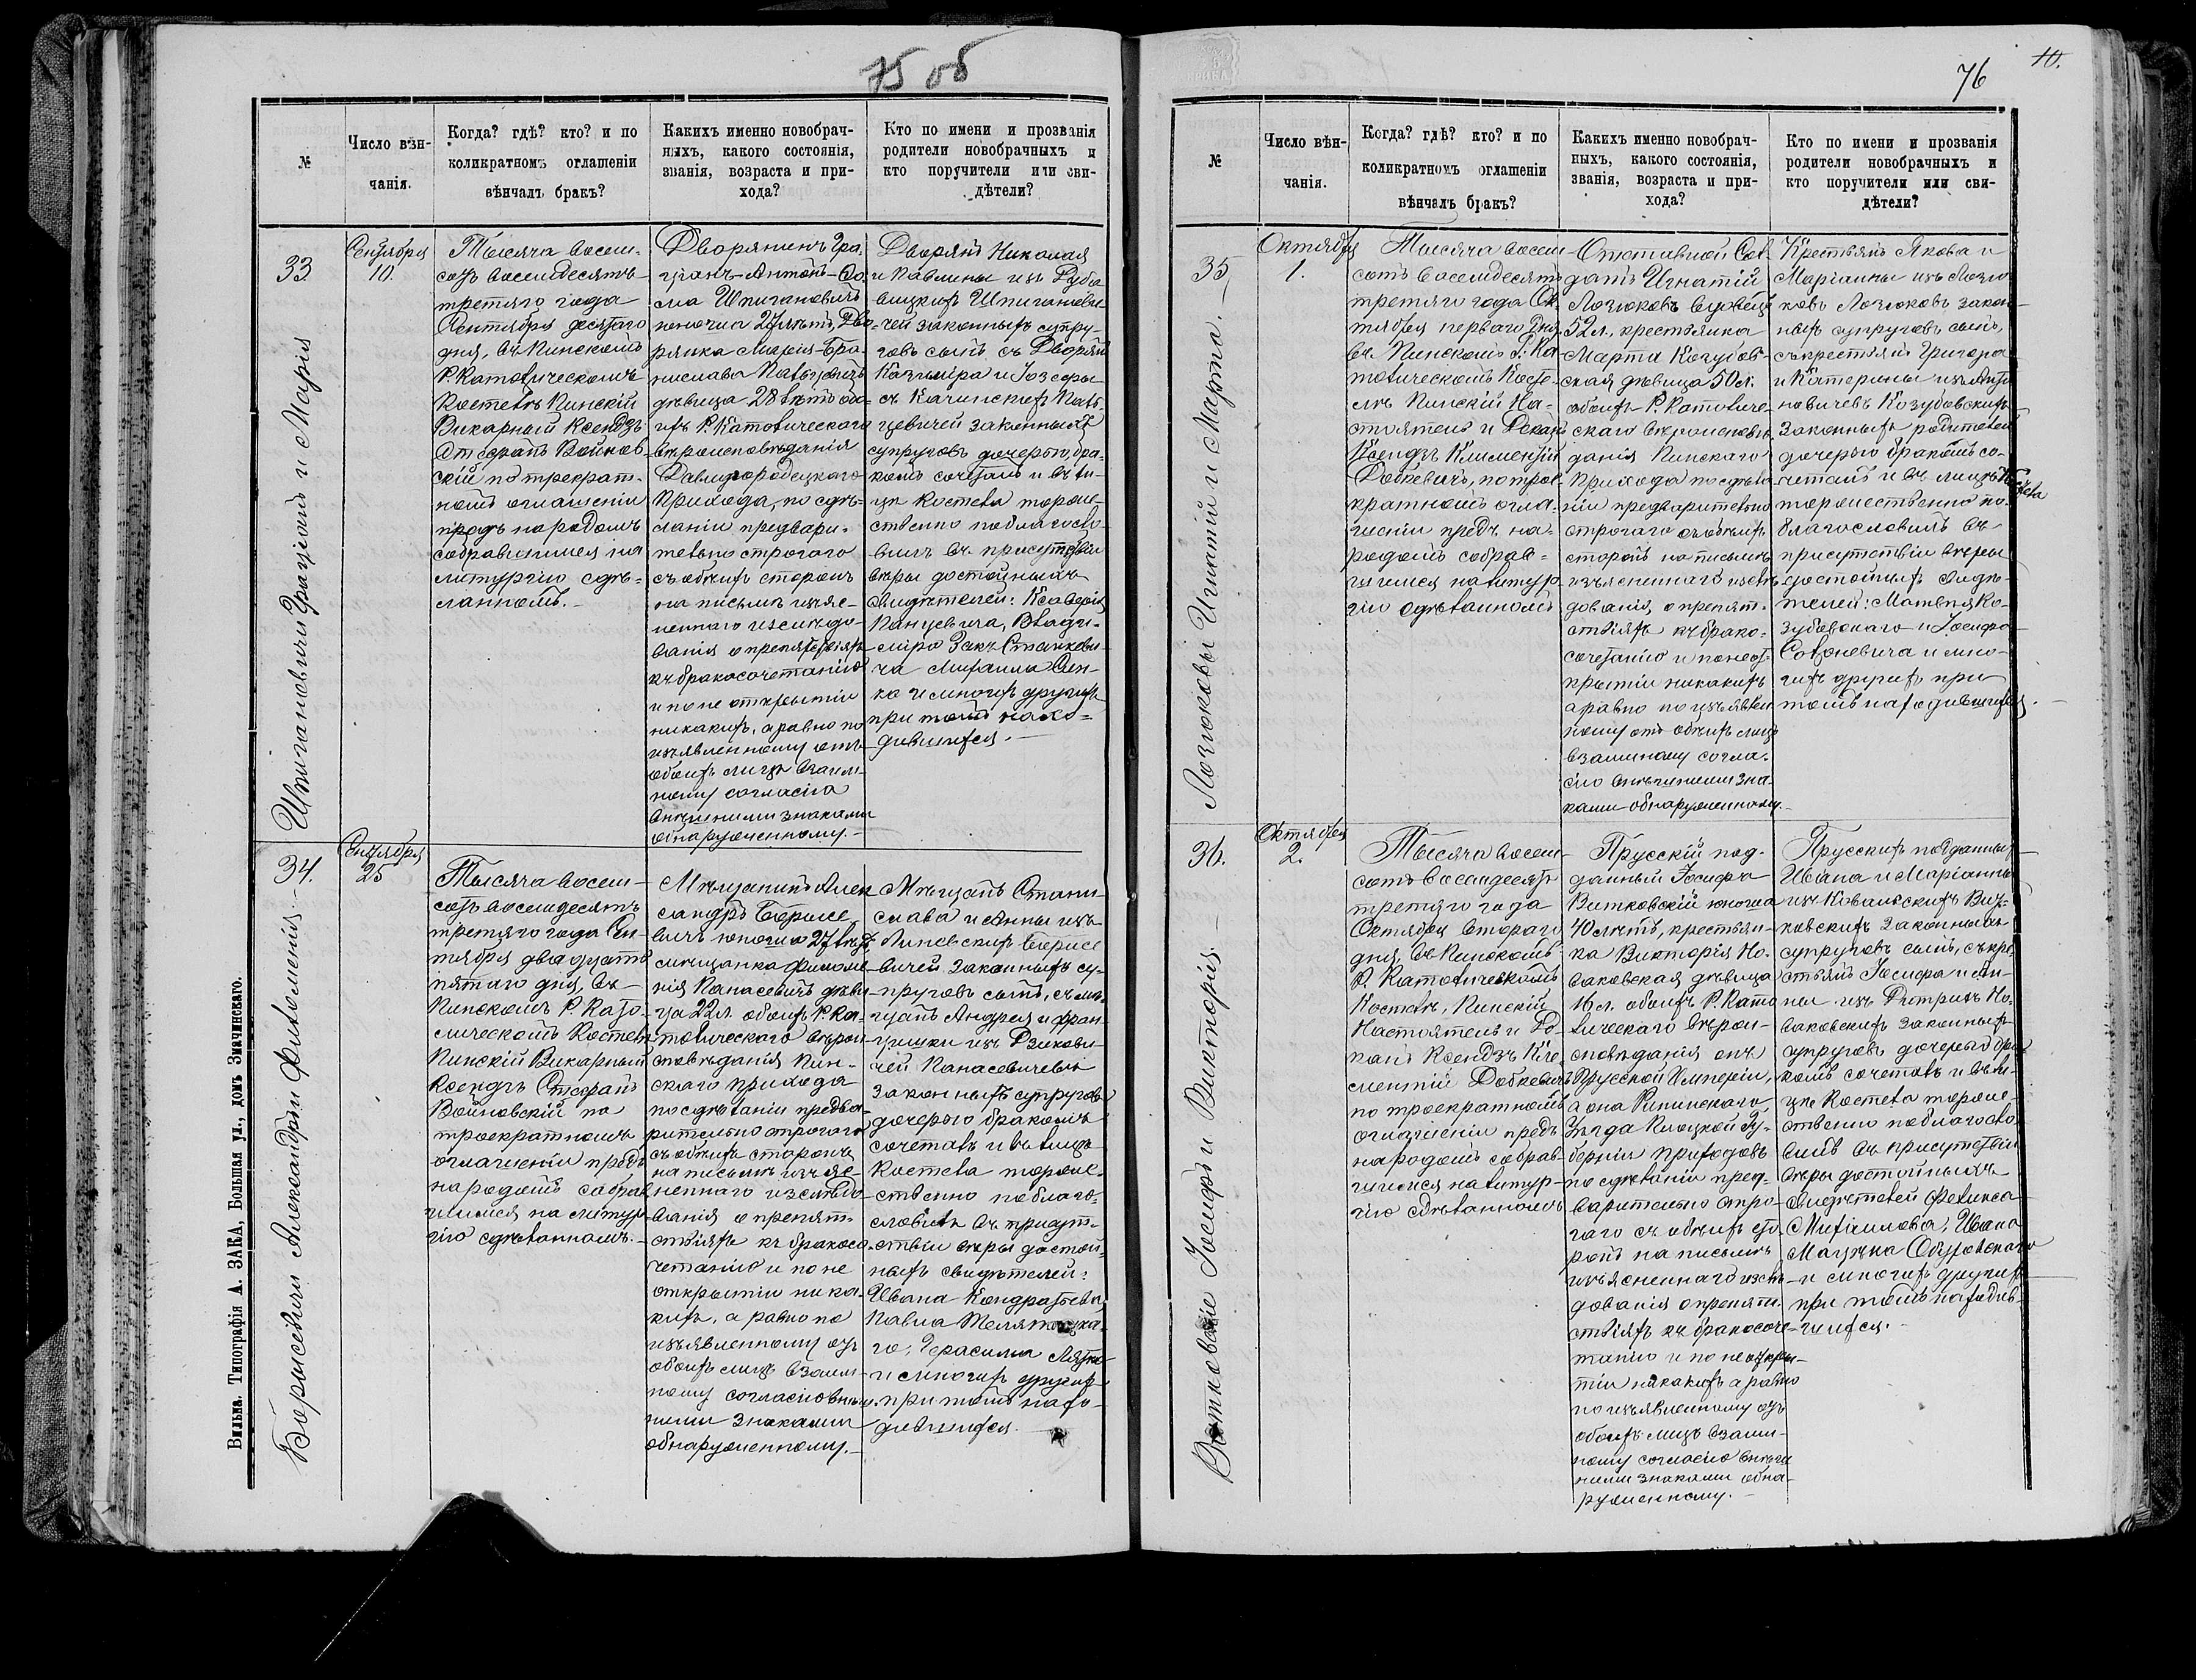 75 об
№
Число вѣн-
чанія.
Когда? гдѣ? кто? и по
коликратномъ оглашеніи
вѣнчалъ бракъ?
Какихъ именно новобрач-
ныхъ, какого состоянія,
званія, возраста и при-
хода?
Кто по имени и прозванія
родители новобрачныхъ и
кто поручители или сви-
дѣтели?
33
Шпигановичи Граціанъ и Марія
Сентября
10.
Тысяча восем-
сотъ восемдесятъ
третяго года
Сентября десятаго
дня, въ Пинскомъ
Р. Католическомъ
Костелѣ Пинскій
Викарный Ксендзъ
Стефанъ Войнов-
скій по трекрат-
номъ оглашеніи
предъ народомъ
собравшимся на
литургію сдѣ-
ланномъ.
Дворянинъ Гра-
ціанъ-Антонъ-
Шпигановичъ
юноша 27 лѣтъ, Дво-
рянка Марія-Бро-
нислава
дѣвица 28 лѣтъ обо-
ихъ Р. Католическаго
вѣроисповѣданія
Давидгородецкаго
прихода, по сдѣ-
ланіи предвари-
тельно строгаго
съ обѣихъ сторонъ
на письмѣ изъяс-
неннаго изслѣдо-
ванія о препятствіяхъ
къ бракосочетанію
и по не открытіи
никакихъ, а равно по
изъявленному отъ
обоихъ лицъ взаим-
ному согласію
внѣшними знаками
обнаруженному.
Дворянъ Николая
и Павлины изъ
Шпиганови-
чей законныхъ супру-
говъ сынъ, съ Дворянъ
Казиміра и Іозефы
съ Качинскихъ
цевичей законныхъ
супруговъ дочерью, бра-
комъ сочеталъ и въ ли-
цѣ Костела торже-
ственно поблагосло-
вилъ въ присутствіи
вѣры достойныхъ
свидѣтелей: Ксаверія
Панцевича, Влади-
міра Закъ Станкеви-
ча Михаила Сен-
ка и многихъ другихъ
при томъ нахо-
дившихся.
34.
Борисевичи Александръ и Филоменія.
Сентября
25
Тысяча восем-
сотъ восемдесятъ
третяго года Сен-
тября двадцать
пятаго дня, въ
Пинскомъ Р. Като-
лическомъ Костелѣ
Пинскій Викарный
Ксендзъ Стефанъ
Войновскій по
троекратномъ
оглашеніи предъ
народомъ собрав-
шимся на литур-
гію сдѣланномъ.
Мѣщанинъ Алек-
сандръ Борисе-
вичъ юноша 27 лѣтъ,
мѣщанка Филоме-
нія Панасевичъ дѣви-
ца 22 л. обоихъ Р. Ка-
толическаго вѣрои-
сповѣданія Пин-
скаго прихода
по сдѣланіи предва-
рительно строгаго
съ обѣихъ сторонъ
на письмѣ изъяс-
неннаго изслѣдо-
ванія о препят-
ствіяхъ къ бракосо-
четанію и по не
открытіи ника-
кихъ, а равно по
изъявленному отъ
обоихъ лицъ взаим-
ному согласію внѣш-
ними знаками
обнаруженному.
Мѣщанъ Стани-
слава и Анны изъ
Липскихъ Борисе-
вичей законныхъ су-
пруговъ сынъ, съ мѣ-
щанъ Андрея и Фран-
цишки изъ
Панасевичевъ
законныхъ супруговъ
дочерью бракомъ
сочеталъ и въ лицѣ
Костела торже-
ственно поблаго-
словилъ въ присут-
ствіи вѣры достой-
ныхъ свидѣтелей:
Ивана Кондратьева,
Павла
го, Герасима
и многихъ другихъ
при томъ нахо-
дившихся.
Вильна. Типографія А. ЗАКА, Большая ул., домъ Значинскаго.
76
10.
№
Число вѣн-
чанія.
Когда? гдѣ? кто? и по
коликратномъ оглашеніи
вѣнчалъ бракъ?
Какихъ именно новобрач-
ныхъ, какого состоянія,
званія, возраста и при-
хода?
Кто по имени и прозванія
родители новобрачныхъ и
кто поручители или сви-
дѣтели?
35
Лозюковы Игнатій и Марта.
Октября
1.
Тысяча восем-
сотъ восемдесятъ
третяго года Ок-
тября перваго дня
въ Пинскомъ Р. Ка-
толическомъ Косте-
лѣ Пинскій На-
стоятель и Деканъ
Ксендзъ Климентій
Добкевичъ, по трое-
кратномъ огла-
шеніи предъ на-
родомъ собрав-
шимся на литур-
гіи сдѣланномъ
Отставной Сол-
датъ Игнатій
Лозюковъ вдовецъ
52 л., крестьянка
Марта Козубов-
ская дѣвица 50 л.
обоихъ Р. Католиче-
скаго вѣроисповѣ-
данія Пинскаго
прихода по сдѣла-
ніи предварительно
строгаго съ обѣихъ
сторонъ на письмѣ
изъясненнаго изслѣ-
дованія о препят-
ствіяхъ къ брако-
сочетанію и по не от-
крытіи никакихъ
а равно по изъявлен-
ному отъ обѣихъ лицъ
взаимному согла-
сію внѣшними зна-
ками обнаруженному.
Крестьянъ Якова и
Маріанны изъ Лозю-
ковъ Лозюковъ закон-
ныхъ супруговъ сынъ,
съ крестьянъ Григора
и Катерины изъ Анто-
новичевъ Козубовскихъ
Законныхъ родителей
дочерью бракомъ со-
четалъ и въ лицѣ Костела
торжественно по-
благословилъ въ
присутствіи вѣры
достойныхъ свидѣ-
телей: Матвѣя Ко-
зубовскаго и Іосифа
и мно-
гихъ другихъ при
томъ находившихся.
36.
Витковскіе Іосифъ и Викторія.
Октября
2.
Тысяча восем-
сотъ восемдесятъ
третяго года
Октября втораго
дня, въ Пинскомъ
Р. Католическомъ
Костелѣ, Пинскій
Настоятель и Де-
канъ Ксендзъ Кли-
ментій Добкевичъ
по троекратномъ
оглашеніи предъ
народомъ собрав-
шимся на литур-
гію сдѣланномъ
Прусскій под-
данный Іосифъ
Витковскій юноша
40 лѣтъ, крестьян-
ка Викторія Но-
ваковская дѣвица
16 л. обоихъ Р. Като-
лическаго вѣрои-
сповѣданія онъ
Прусской Имперіи,
а она Рипинскаго
Уѣзда Плоцкой Гу-
берніи приходовъ
по сдѣланіи пред-
варительно стро-
гаго съ обѣихъ сто-
ронъ на письмѣ
изъясненнаго изслѣ-
дованія о препят-
ствіяхъ къ бракосоче-
танію и по не откры-
тіи никакихъ а равно
по изъявленному отъ
обоихъ лицъ взаим-
ному согласію внѣш-
ними знаками обна-
руженному.
Прусскихъ подданныхъ
Ивана и Маріанны
изъ Ковальскихъ Вит-
ковскихъ законныхъ
супруговъ сынъ, съ кре-
стьянъ Іосифа и Ан-
ны изъ Но-
ваковскихъ законныхъ
супруговъ дочерью бра-
комъ сочеталъ и въ ли-
цѣ Костела торже-
ственно поблагосло-
вилъ въ присутствіи
вѣры достойныхъ
свидѣтелей Феликса
Ивана
и многихъ другихъ
при томъ находив-
шихся.